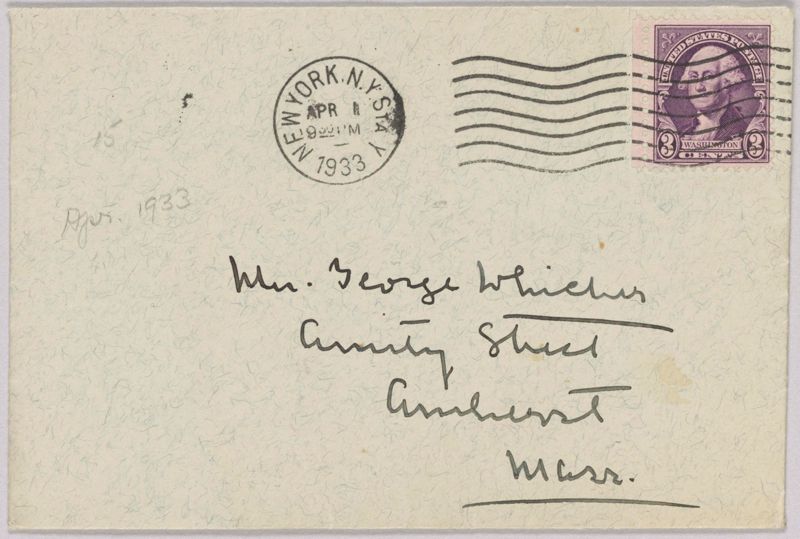 NEW YORK, N.Y. STA Y
APR 1
9 30 PM
1933
UNITED STATES POSTAGE
3 WASHINGTON 3
CENTS
15
Apr. 1933
Mr. George Whicher
Amity Street
Amherst
Mass.